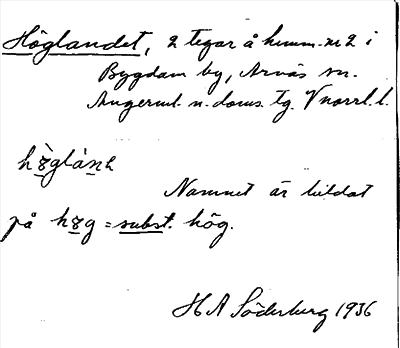 Höglandet, 2 tegar å hemm. nr 2 i
Bygdom by, Arnäs sn.
Ångerml. n. doms. tg. Vnorrl. l.
hö̀glánn
Namnet är bildat
på hög = subst. hög.
H A Söderberg 1936